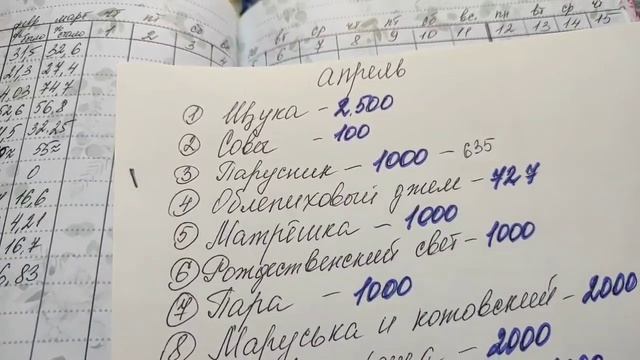 март
стало стало
315 32,6
21,3 27,4
4,03 74,7
52,6 56,8
32,25
0
16,6
4,21
16,7
6,83
чт пт сб
1 2 3 4
вт ср чт пт сб вс пн вт ср чт
6 7 8 9 10 11 12 13 14 15
апрель
① Щука – 2.500
② Совы – 100
③ Парусник – 1000 – 635
④ Облепиховый джем – 727
⑤ Матрёшка – 1000
⑥ Рождественский свет – 1000
⑦ Пара – 1000
⑧ Маруська и котовский – 2000
2000